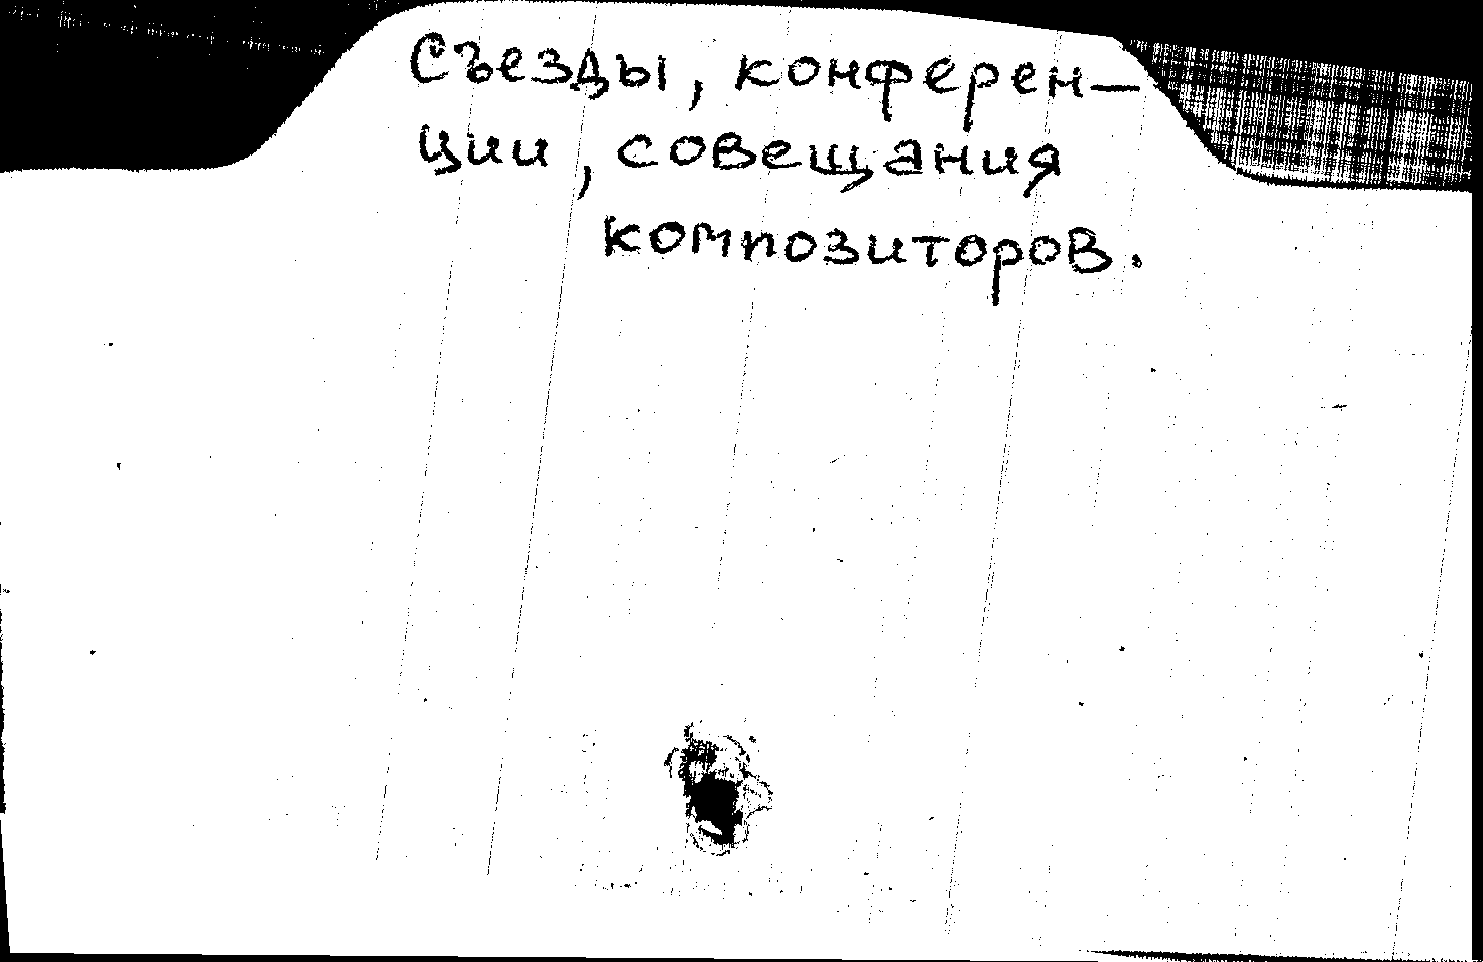 Съезды, конферен-
ции, совещания
композиторов.